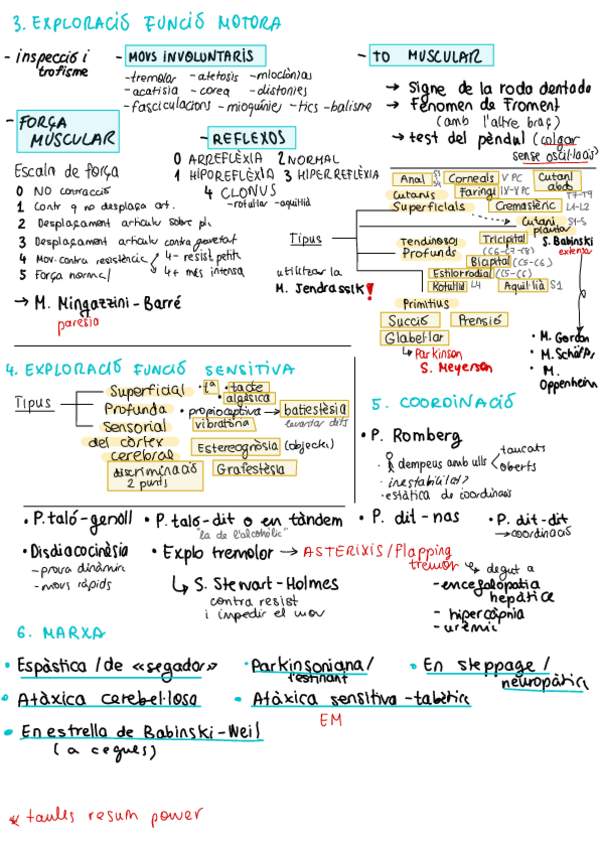 3. EXPLORACIÓ FUNCIÓ MOTORA
- inspecció i
trofisme
- MOVS INVOLUNTARIS
- tremolor - atetosis - mioclònias
- acatisia - corea - distonies
- fasciculacions - mioquínies - tics - balisme
- TO MUSCULAR
→ Signe de la roda dentada
→ Fenomen de Froment
(amb l'altre braç)
→ test del pèndul (colgar
sense oscil·lació)
- FORÇA
MUSCULAR
Escala de força
0 NO contracció
1 Contr q no desplaça art.
2 Desplaçament articular sobre pl.
3 Desplaçament articular contra gravetat
4 Mov. contra resistència
4- resist petita
4+ més intensa
5 Força normal
→ M. Mingazzini-Barré
paresia
- REFLEXOS
0 ARREFLÈXIA 2 NORMAL
1 HIPOREFLÈXIA 3 HIPERREFLÈXIA
4 CLONUS
- rotular - aquil·lià
Tipus
utilitzar la
M. Jendrassik!
Cutanis
Superficials
Anal S1 S4
Corneals V PC
Cutani abdo T7-T9
Faringi IX-V PC
Cremastèric L1-L2
Cutani plantar S1-S
S. Babinski
extensa
Tendinosos
Profunds
Tricipital
(C6-C7-C8)
Bicipital (C5-C6)
Estilorradial (C5-C6)
Rotulià L4 Aquil·lià S1
Primitius
Succió Prensió
Glabel·lar
↳ Parkinson
S. Meyerson
• M. Gordon
• M. Schäf
• M.
Oppenheim
4. EXPLORACIÓ FUNCIÓ SENSITIVA
Tipus
Superficial • tª • tacte
• algèsica
Profunda • propioceptiva → batiestèsia
vibratòria
llevantar dits
Sensorial
del còrtex
cerebral
Estereognòsia (objectes)
discriminació
2 punts
Grafestèsia
5. COORDINACIÓ
• P. Romberg
• dempeus amb ulls
tancats
oberts
• inestabilitat?
• estàtica de coordinació
• P. taló-genoll • P. taló-dit o en tàndem
"la de l'alcohòlic"
• P. dit-nas • P. dit-dit
→ coordinació
• Disdiacocinèsia
- prova dinàmic
- movs ràpids
• Explo tremolor → ASTERIXIS/Flapping
tremor
↳ degut a
- encefalopatia
hepàtica
- hipercàpnia
- urèmic
↳ S. Stewart-Holmes
contra resist
i impedir el mov
6. MARXA
• Espàstica / de «segador»
• Parkinsoniana/
festinant
• En steppage /
neuropàtica
• Atàxica cerebel·losa
• Atàxica sensitiva-tabètica
EM
• En estrella de Babinski-Weil
(a cegues)
* taules resum power